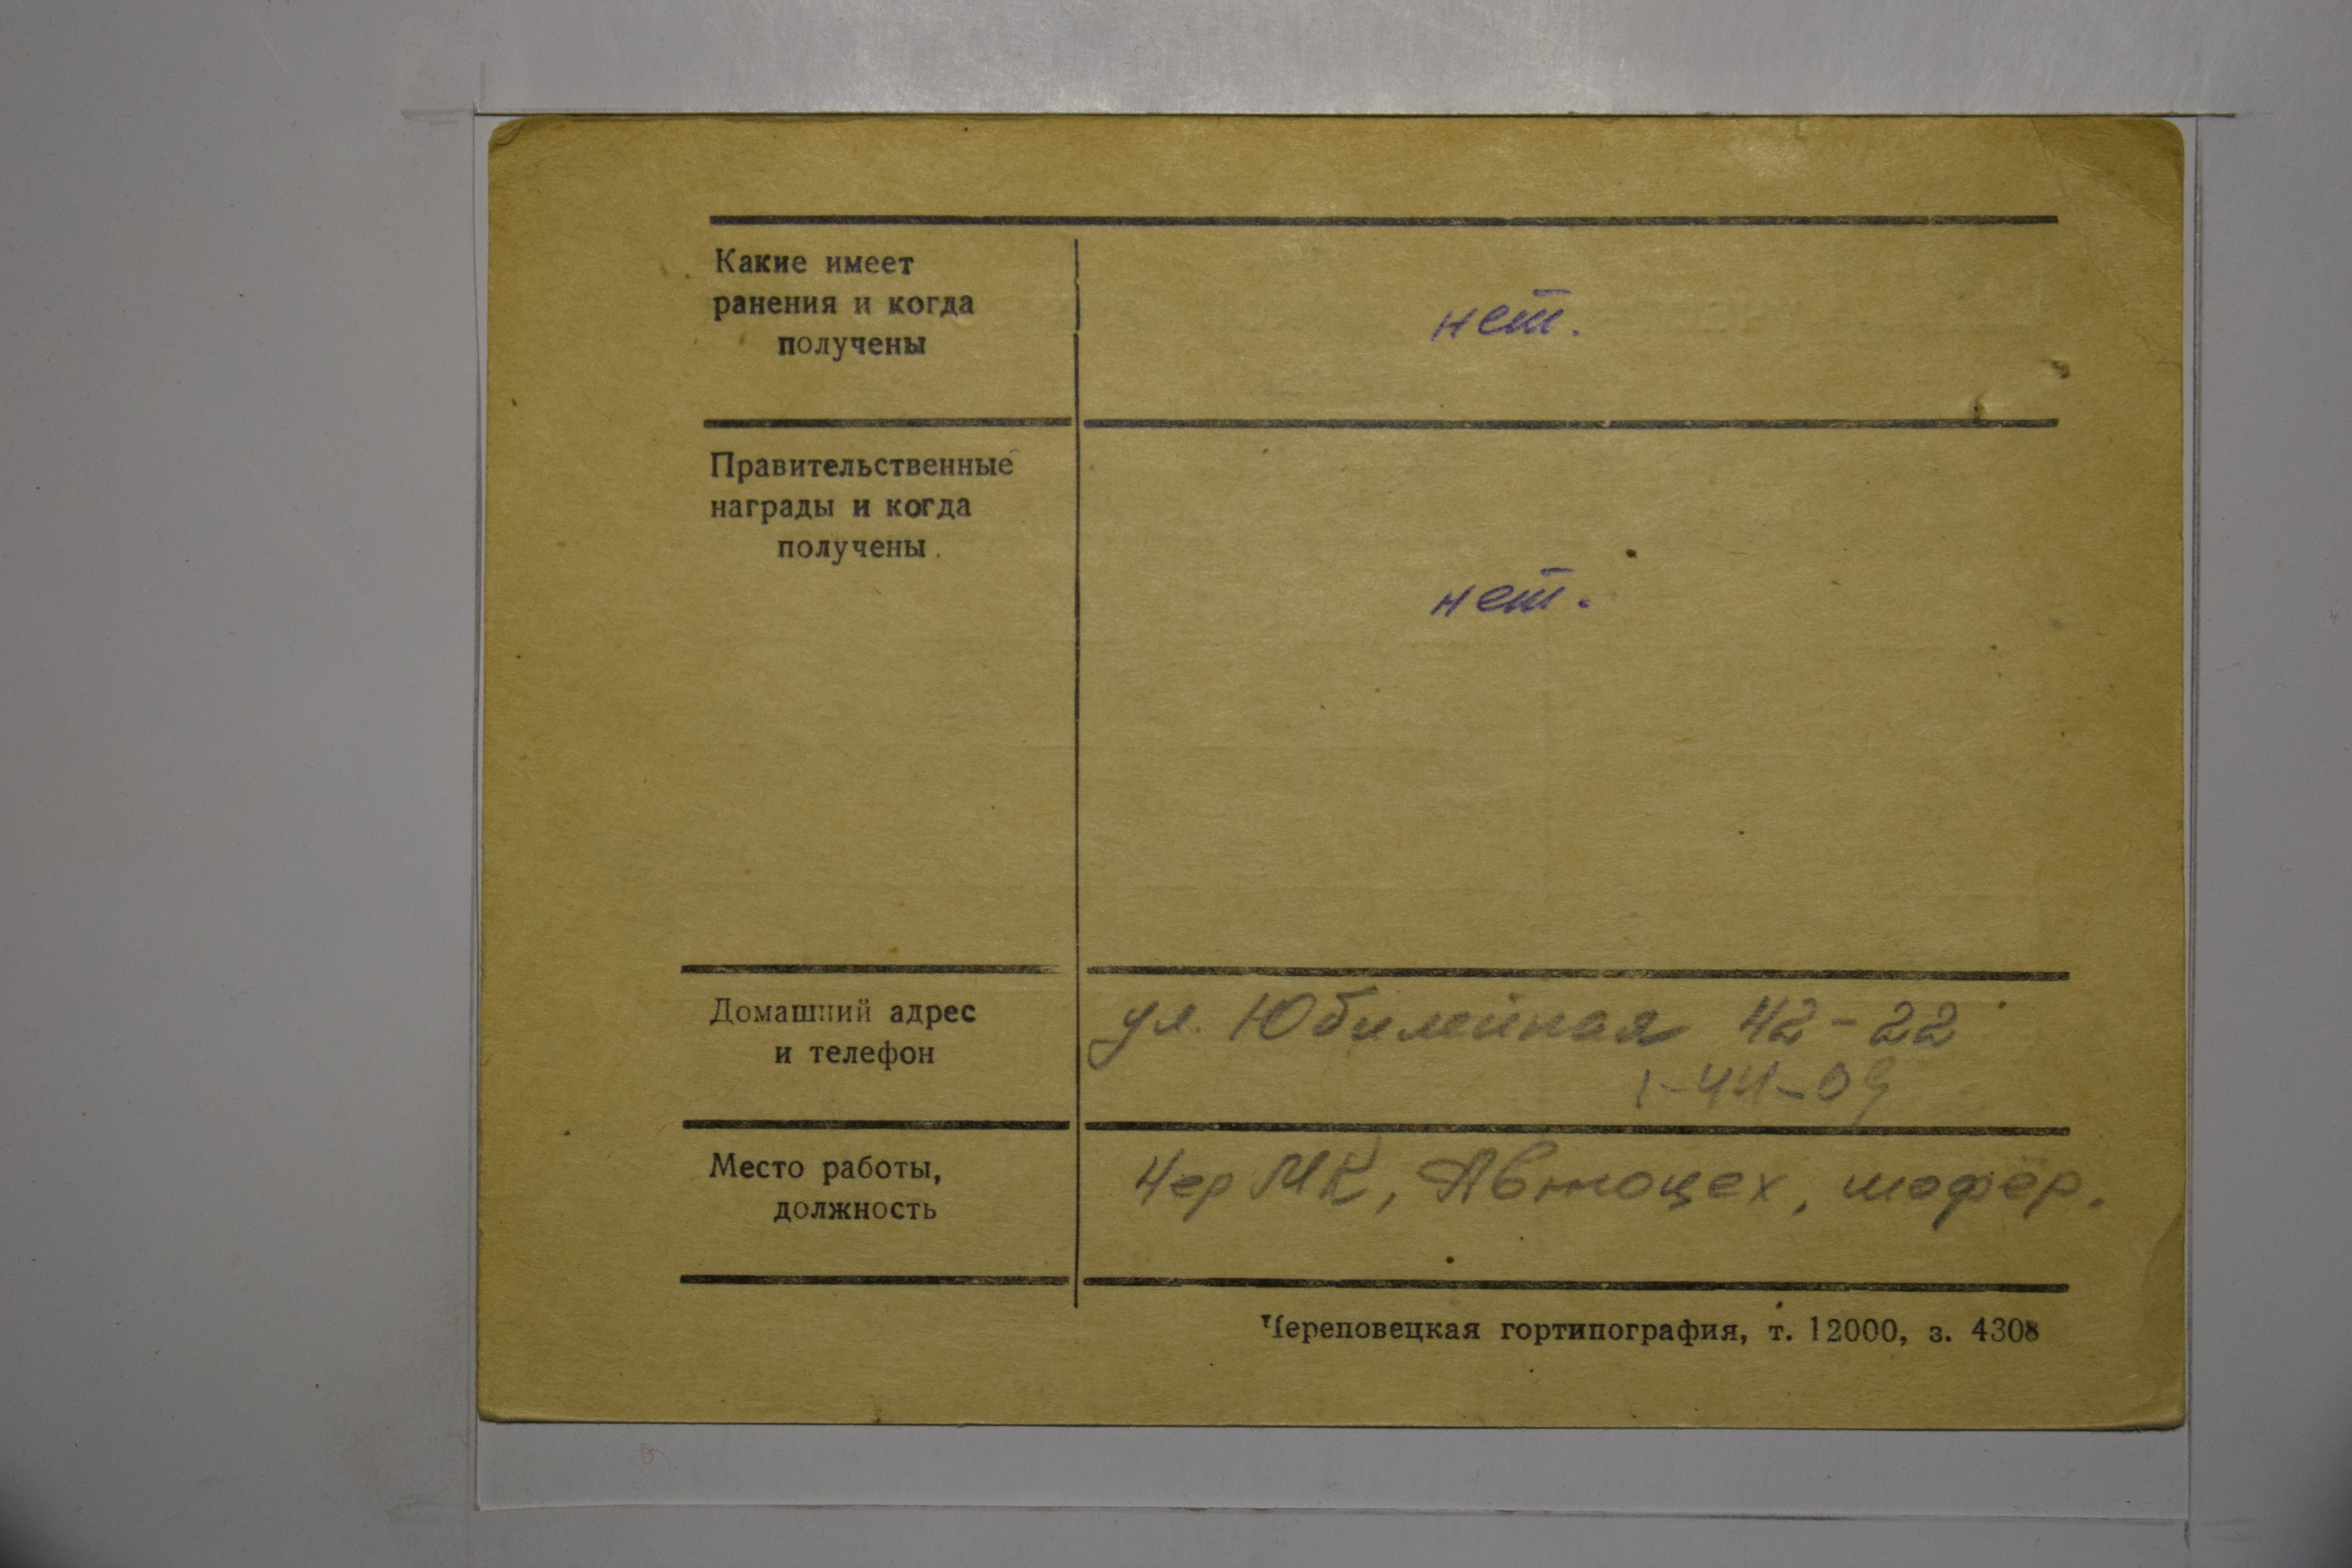 Какие имеет
ранения и когда
получены
нет.
Правительственные
награды и когда
получены.
нет.
Домашний адрес
и телефон
ул. Юбилейная 42-22
1-44-09
Место работы,
должность
ЧерМК, Автоцех, шофёр.
Череповецкая гортипография, т. 12000, з. 4308